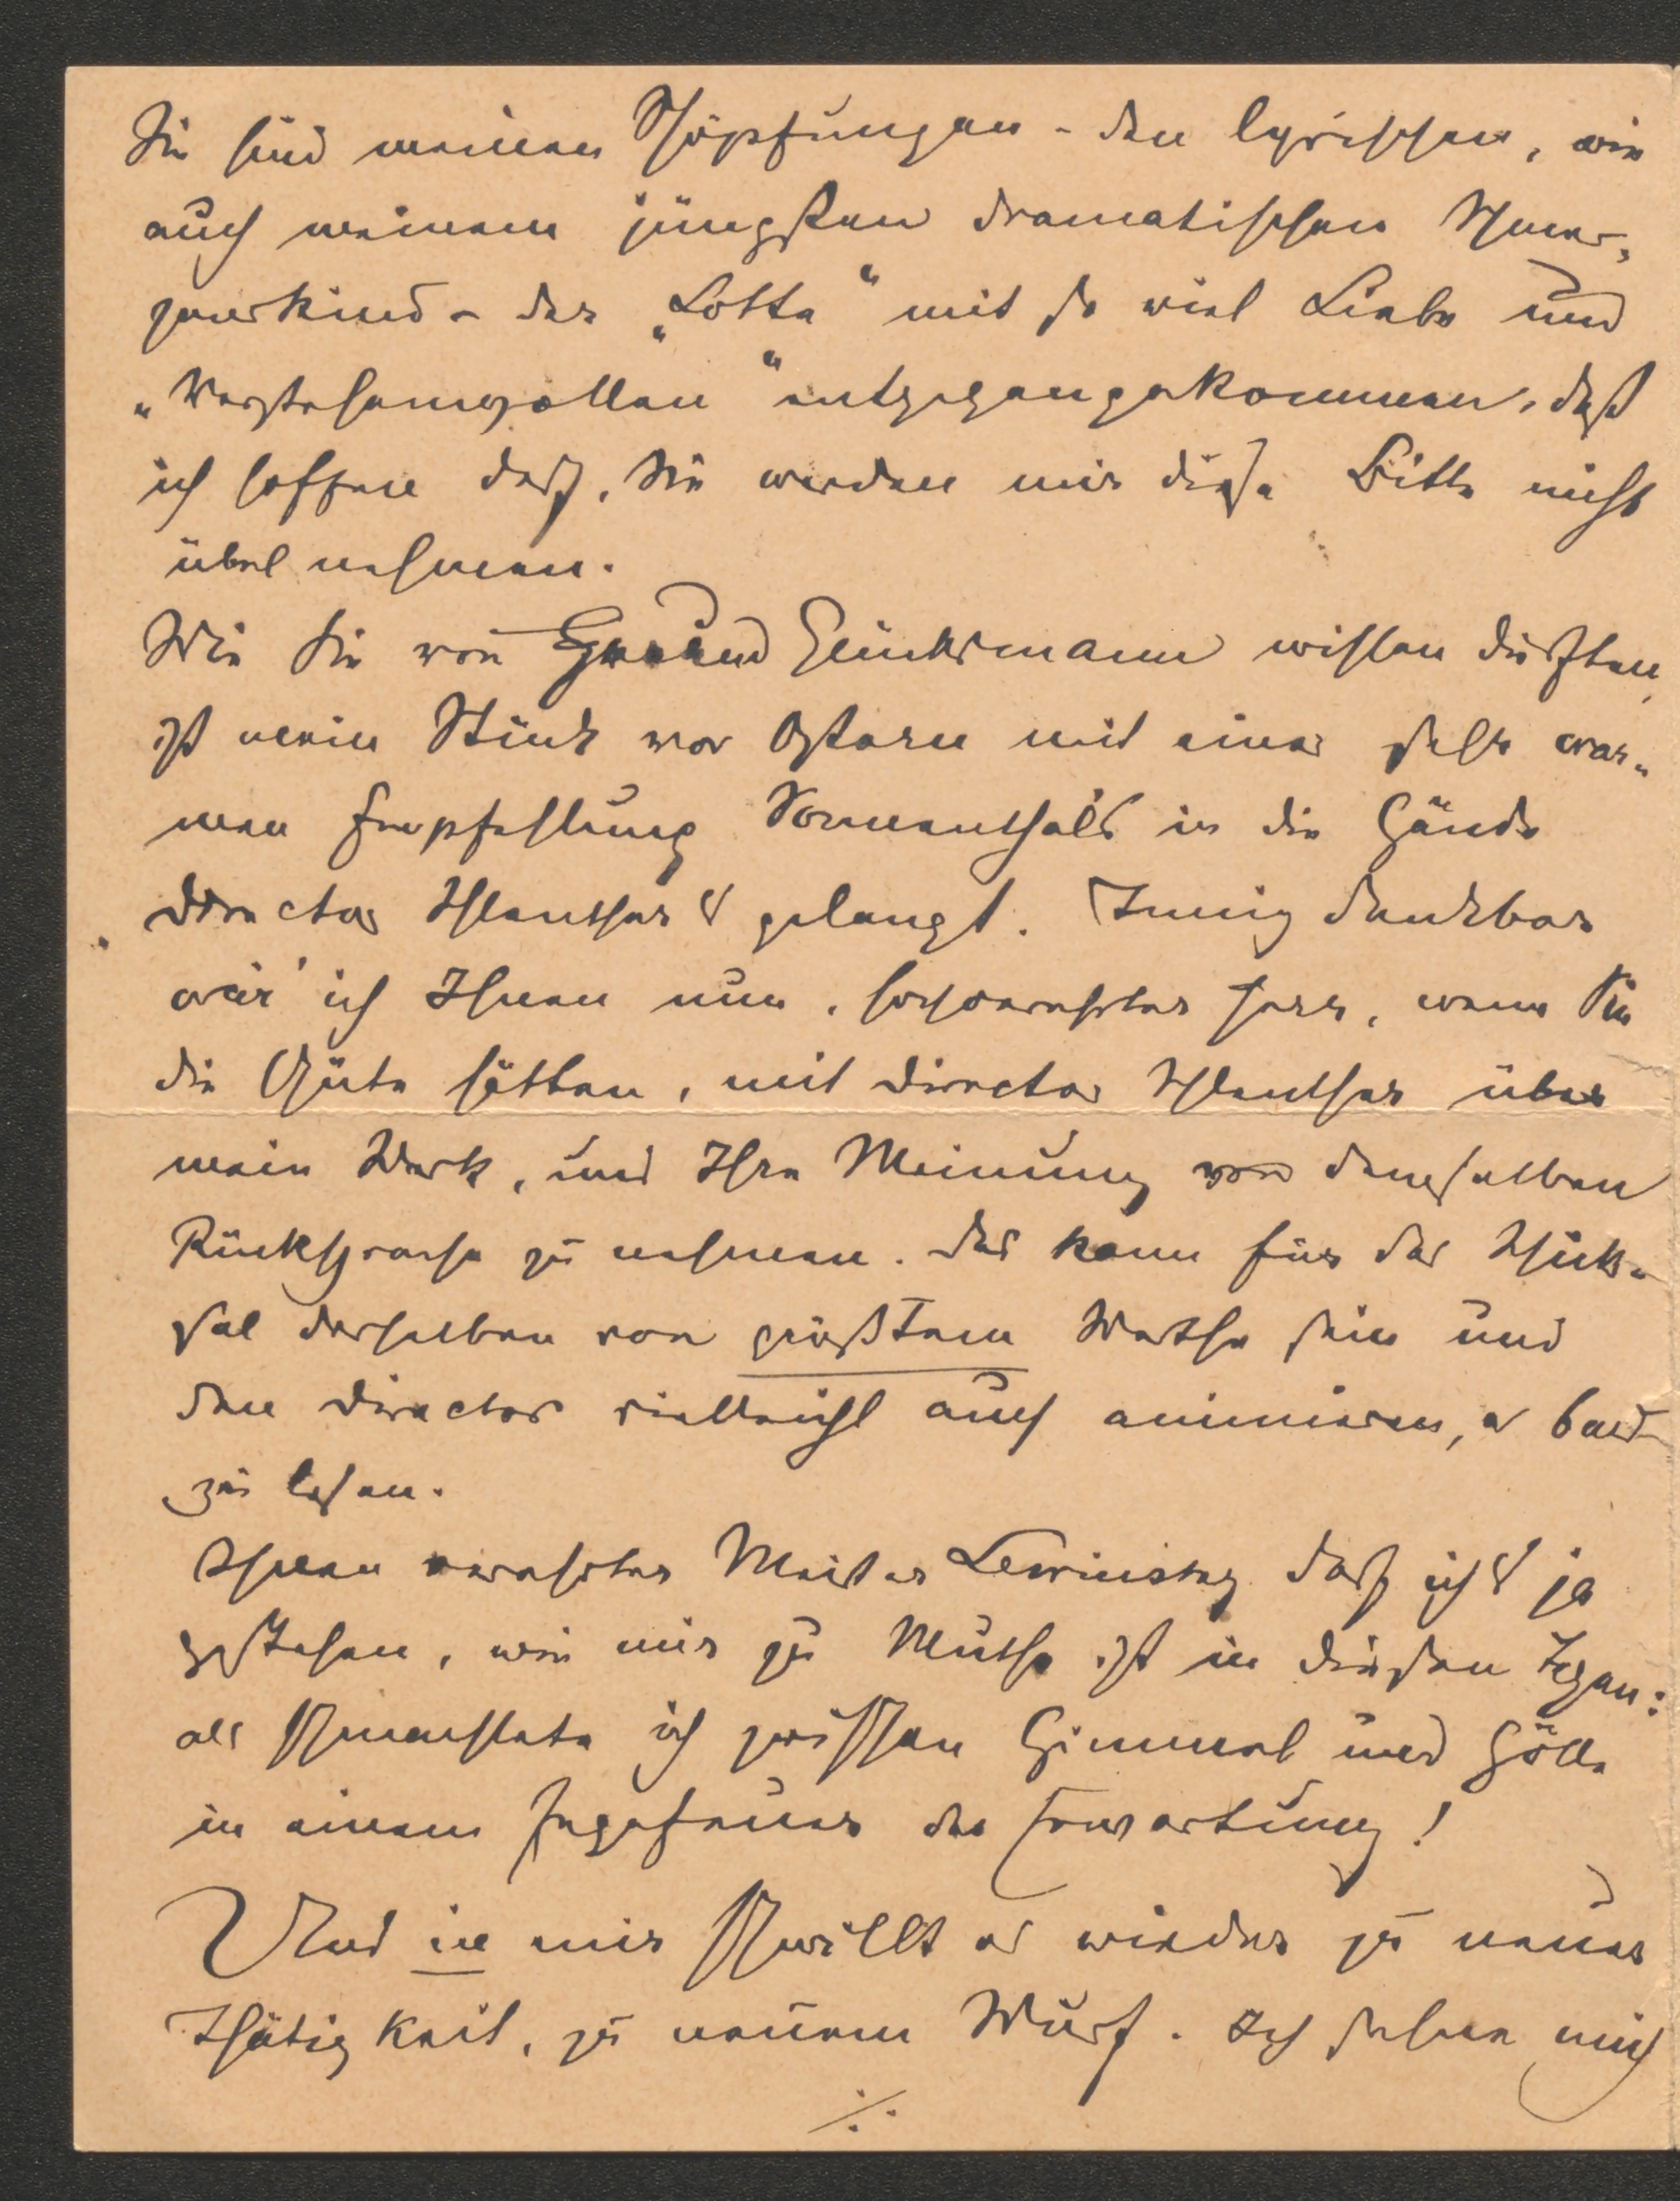 Sie sind meinen Schöpfungen - den lyrischen, wie
auch meinem jüngsten dramatischen Schmer-
zenskind - der „Lotte“ mit so viel Liebe und
„Verstehenwollen“ entgegengekommen, daß
ich hoffen darf, Sie werden mir diese Bitte nicht
übel nehmen.
Wie Sie von Freund Glücksmann wissen dürften,
ist mein Stück vor Ostern mit einer sehr war-
men Empfehlung Sonnenthals in die Hände
Director Schlenthers gelangt. Innig dankbar
wär' ich Ihnen nun, hochverehrter Herr, wenn Sie
die Güte hätten, mit Director Schlenther über
mein Werk, und Ihre Meinung von demselben
Rücksprache zu nehmen. Das kann für das Schick-
sal desselben von größtem Werthe sein und
den Director vielleicht auch animieren, es bald
zu lesen.
Ihnen verehrter Meister Lewinsky darf ich's ja
gestehen, wie mir zu Muthe ist in diesen Tagen:
als schmachtete ich zwischen Himmel und Hölle
in einem Fegefeuer der Erwartung!
Und in mir schwillt es wieder zu neuer
Thätigkeit, zu neuem Wurf. Ich sehne mich
./.